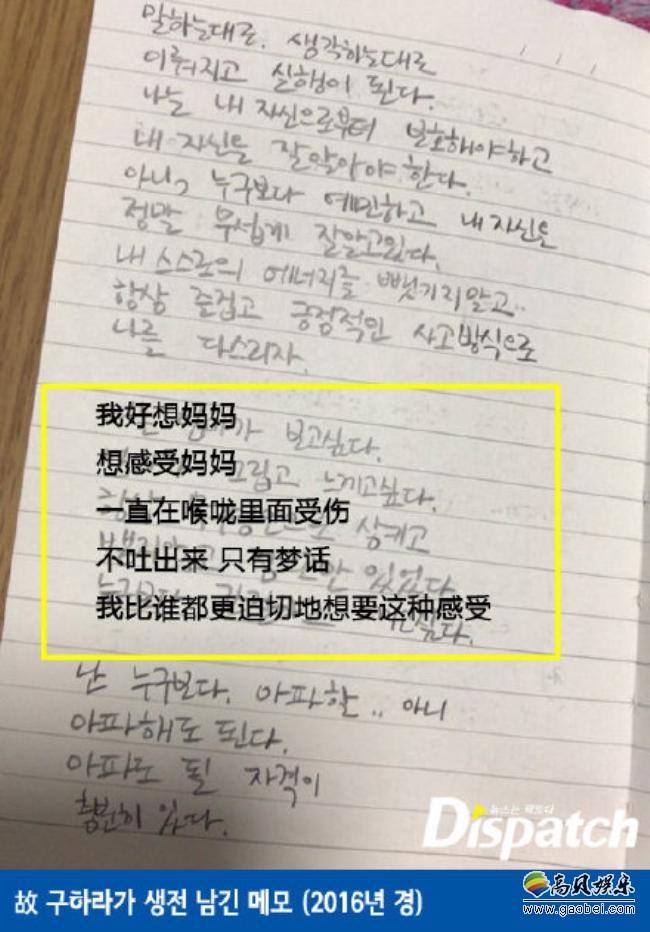 말하는대로. 생각하는대로
이뤄지고 실행이 된다.
나는 내 자신으로부터 보호해야하고
내 자신을 잘 알아야 한다.
아니, 누구보다 예민하고 내 자신을
정말 무섭게 잘알고있다.
내 스스로의 에너지를 뺏기지말고..
항상 즐겁고 긍정적인 사고방식으로
나를 다스리자.
我好想妈妈
보고싶다.
想感受妈妈
그립고 느끼고싶다.
一直在喉咙里面受伤
삼키고
不吐出来 只有梦话
있었다
我比谁都更迫切地想要这种感受
난 누구보다. 아파할.. 아니
아파해도 된다.
아파도 될 자격이
충분히 있다.
뉴스는 팩트다
Dispatch
故 구하라가 생전 남긴 메모 (2016년 경)
高风娱乐
www.gaobei.com